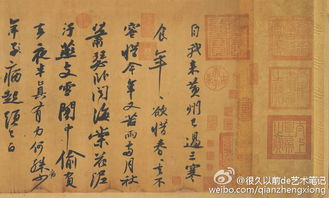 自我來黃州已過三寒
食年〻欲惜春〻去不
容惜今年又苦雨兩月秋
蕭瑟卧聞海棠花泥
汙燕支雪闇中偷負
去夜半真有力何殊少
年子病起頭已白
@很久以前de艺术笔记
weibo.com/qianzhengxiong